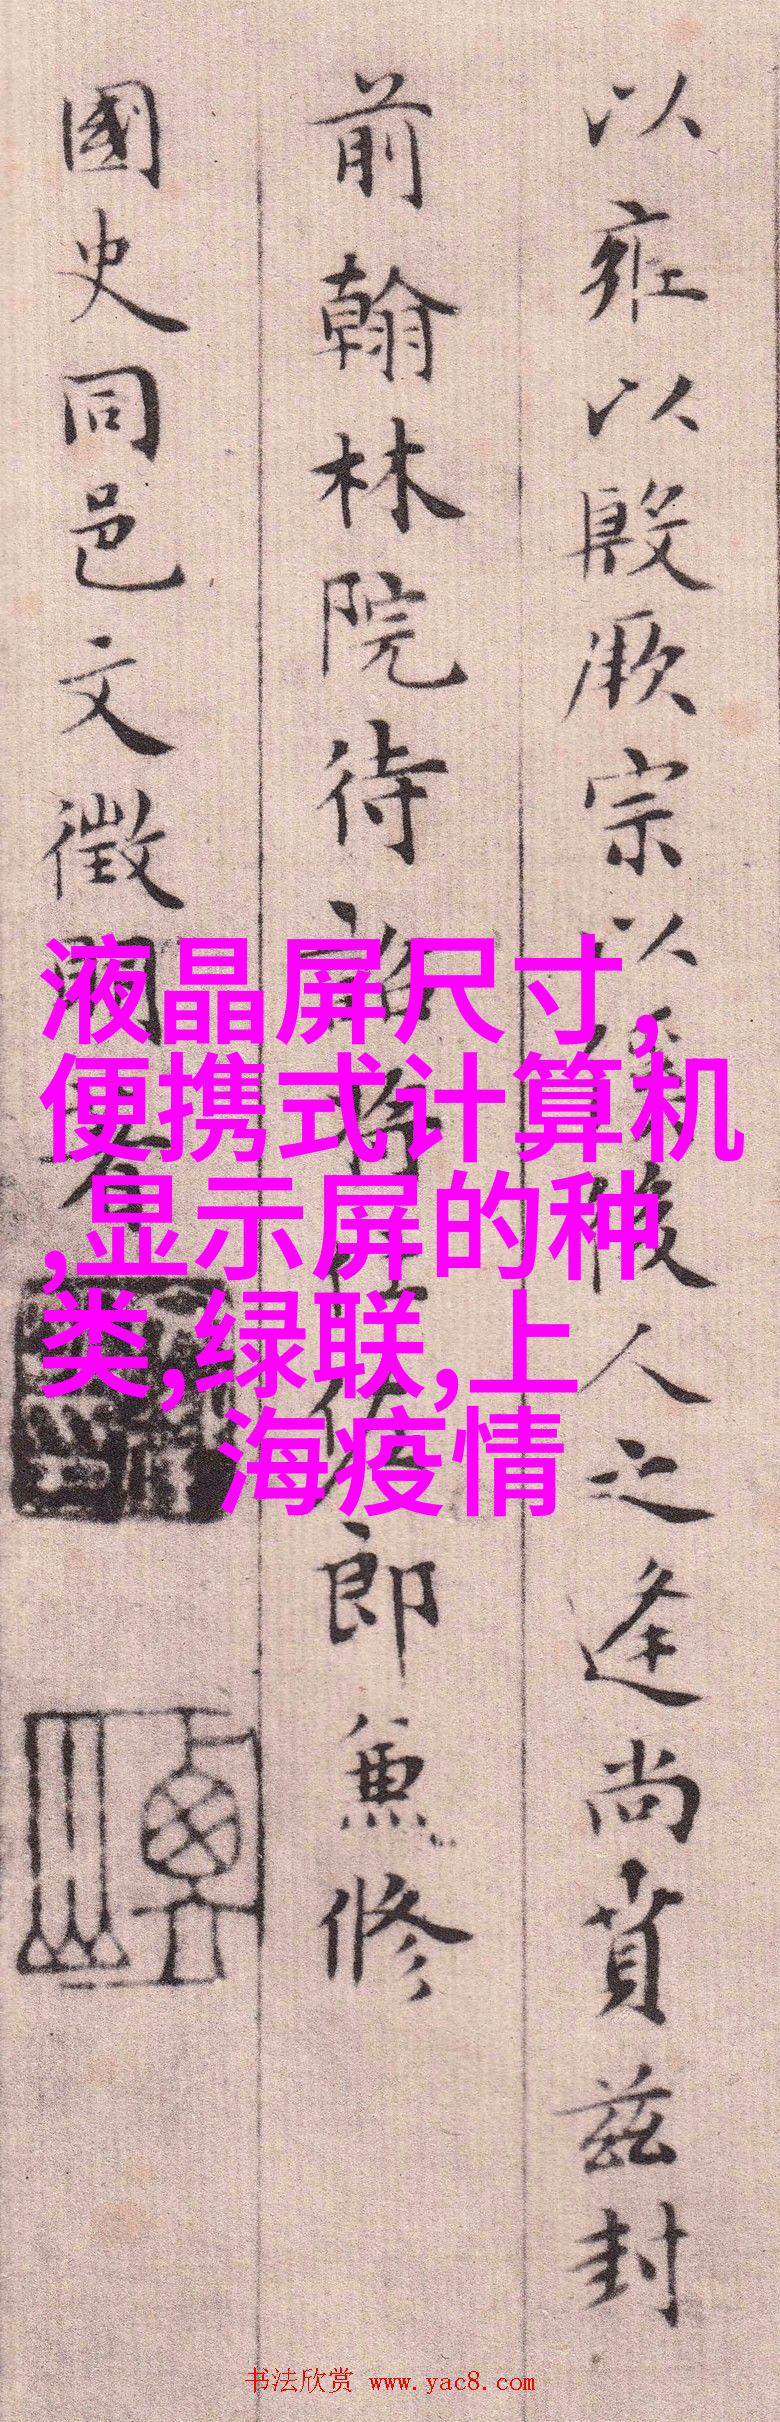 以雍以殷厥宗以
人之逢尚賁茲封
前翰林院待詔將仕佐郎兼修
國史同邑文徵明書
液晶屏尺寸,
便携式计算机
,显示屏的种
类,绿联,上
海疫情
书法欣赏 www.yac8.com